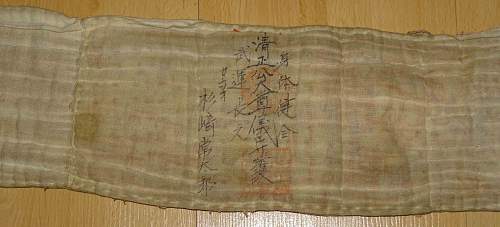 身体健全
清正公大尊儀守護
武運長久
杉崎常太郎